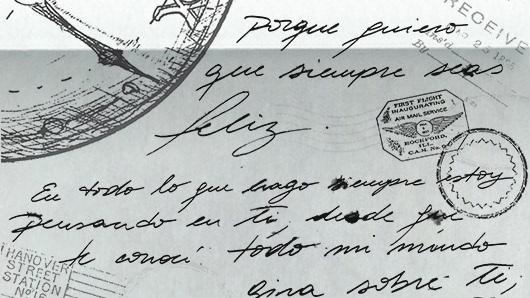 Porque quiero
que siempre seas
feliz.
En todo lo que hago siempre estoy
pensando en ti, desde que
te conocí todo mi mundo
gira sobre ti,
RECEIVE
FIRST FLIGHT
INAUGURATING
AIR MAIL SERVICE
ROCKFORD,
ILL.
C.A.M. No. 9
HANOVER
STREET
STATION
Nº 16